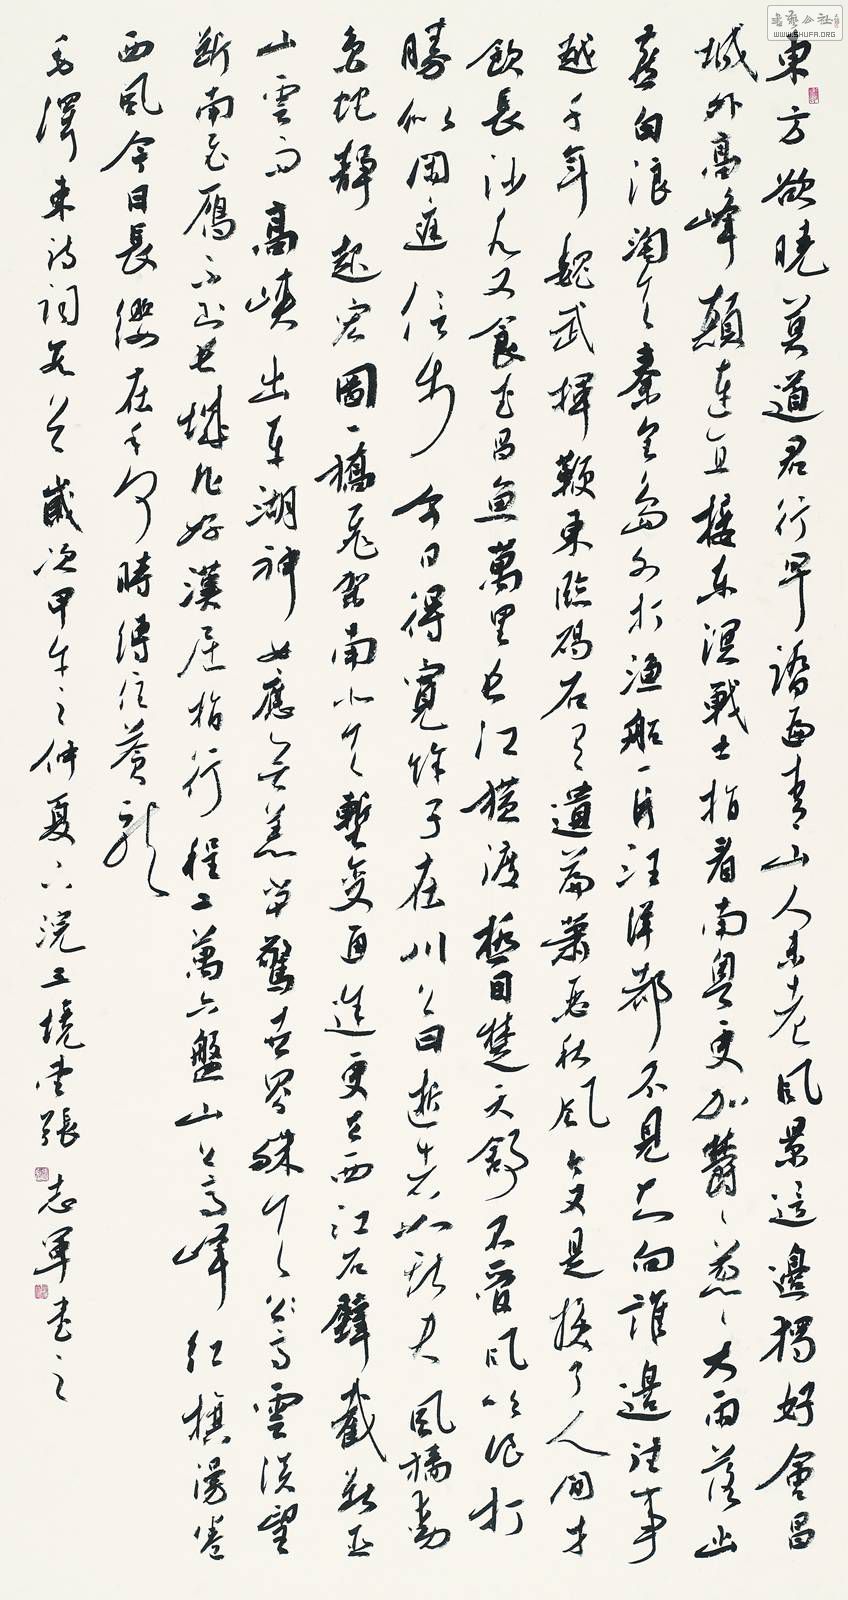 東方欲曉莫道君行早踏遍青山人未老風景這邊獨好會昌
城外高峰顛連直接東溟戰士指看南粵更加鬱〻蔥〻大雨落幽
燕白浪滔天秦皇島外打漁船一片汪洋都不見知向誰邊往事
越千年魏武揮鞭東臨碣石有遺篇蕭瑟秋風今又是換了人間才
飲長沙水又食武昌魚萬里長江橫渡極目楚天舒不管風吹浪打
勝似閑庭信步今日得寬餘子在川上曰逝者如斯夫風檣動
龜蛇靜起宏圖一橋飛架南北天塹變通途更立西江石壁截斷巫
山雲雨高峽出平湖神女應無恙當驚世界殊天高雲淡望
斷南飛雁不到長城非好漢屈指行程二萬六盤山上高峰紅旗漫卷
西風今日長纓在手何時縛住蒼龍
毛澤東詩詞若首歲次甲午之仲夏下浣堂張志軍書之
書藝公社
WWW.SHUFA.ORG